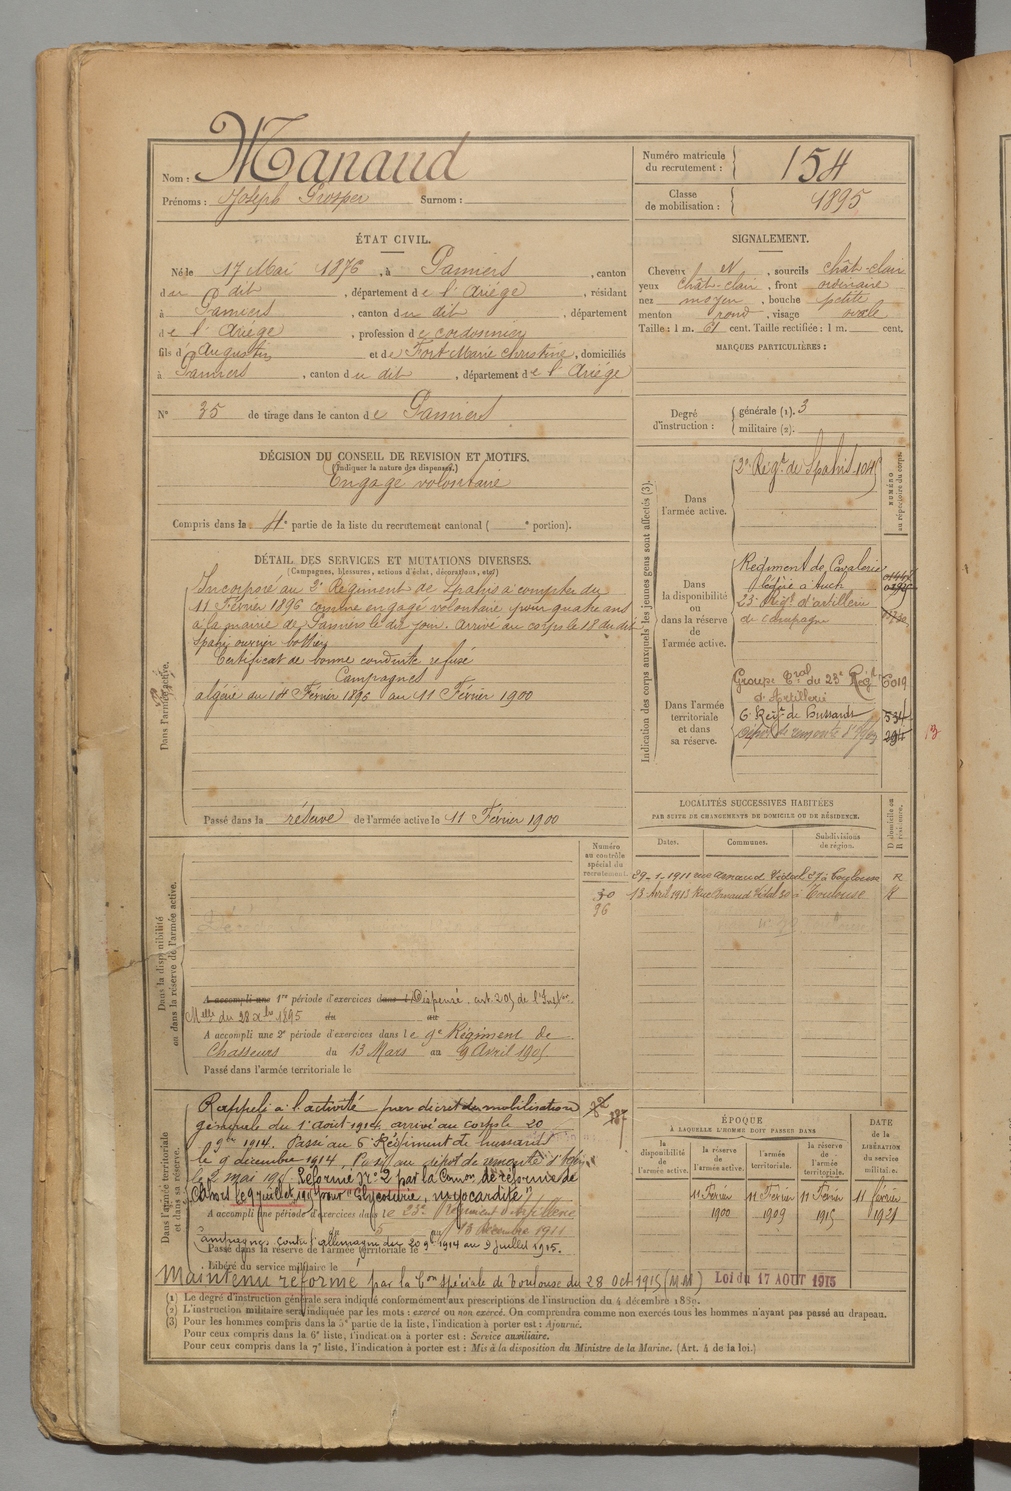 Nom : Manaud
Prénoms : Joseph Prosper Surnom :
Numéro matricule du recrutement : 154
Classe de mobilisation : 1895
ÉTAT CIVIL.
Né le 17 Mai 1876, à Pamiers, canton
du dit, département de l'Ariège, résidant
à Pamiers, canton du dit, département
de l'Ariège, profession de cordonnier
fils d'Augustin et de Fort Marie Christine, domiciliés
à Pamiers, canton du dit, département de l'Ariège
N° 35 de tirage dans le canton de Pamiers
SIGNALEMENT.
Cheveux N, sourcils chât-clair
yeux chât-clair, front ordinaire
nez moyen, bouche petite
menton rond, visage ovale
Taille : 1 m. 61 cent. Taille rectifiée : 1 m. cent.
MARQUES PARTICULIÈRES :
Degré d'instruction : générale (1). 3
militaire (2).
DÉCISION DU CONSEIL DE REVISION ET MOTIFS.
(Indiquer la nature des dispenses.)
Engagé volontaire
Compris dans la 4e partie de la liste du recrutement cantonal ( e portion).
DÉTAIL DES SERVICES ET MUTATIONS DIVERSES.
(Campagnes, blessures, actions d'éclat, décorations, etc.)
Dans l'armée active.
Incorporé au 2e Régiment de Spahis à compter du
11 Février 1896 comme engagé volontaire pour quatre ans
à la mairie de Pamiers le dit jour. Arrivé au corps le 18 du dit
Spahi ouvrier bottier
Certificat de bonne conduite refusé
Campagnes
algérie du 14 Février 1896 au 11 Février 1900
Passé dans la réserve de l'armée active le 11 Février 1900
Indication des corps auxquels les jeunes gens sont affectés (3).
NUMÉRO au répertoire du corps.
Dans l'armée active.
2e Régt de Spahis 104
Dans la disponibilité ou dans la réserve de l'armée active.
Régiment de Cavalerie
légère à Auch
23e Régt d'artillerie
de campagne
Dans l'armée territoriale et dans sa réserve.
Groupe du 23e Régt 6019
d'Artillerie
6e Régt de Hussards 534
Dépôt de remonte d' 294
13
LOCALITÉS SUCCESSIVES HABITÉES
PAR SUITE DE CHANGEMENTS DE DOMICILE OU DE RÉSIDENCE.
Dates. Communes. Subdivisions de région. D domicile ou R résidence.
29-1-1911 rue Arnaud Vidal 27 à Toulouse R
13 Avril 1913 Rue Arnaud Vidal 30 à Toulouse R
Numéro au contrôle spécial du recrutement.
30
96
Dans la disponibilité ou dans la réserve de l'armée active.
A accompli une 1re période d'exercices dans Dispensé, art. 205 de l'Inston
Mlle du 28 Xbre 1895 du au
A accompli une 2e période d'exercices dans le 9e Régiment de
Chasseurs du 13 Mars au 9 Avril 1905
Passé dans l'armée territoriale le
Dans l'armée territoriale et dans sa réserve.
Rappelé à l'activité par décret de mobilisation
générale du 1er Aout 1914, arrivé au corps le 20
9bre 1914. Passé au 6e Régiment de hussards
le 9 décembre 1914. Passé au dépôt de remonte d'
le 2 mai 1915. Réformé N° 2 par la Comon de réforme de
Cahors le 9 juillet 1915 pour "Glycosurie, myocardite"
A accompli une période d'exercices dans le 23e Régiment d'Artillerie
du 5 au 13 décembre 1911
Campagnes contre l'allemagne du 20 9bre 1914 au 9 Juillet 1915.
Passé dans la réserve de l'armée territoriale le
Libéré du service militaire le
Maintenu réformé par la Con spéciale de Toulouse du 28 Oct 1915 (MM) Loi du 17 AOUT 1915
ÉPOQUE
À LAQUELLE L'HOMME DOIT PASSER DANS
DATE de la LIBÉRATION du service militaire.
la disponibilité de l'armée active. la réserve de l'armée active. l'armée territoriale. la réserve de l'armée territoriale.
11 Février 1900 11 Février 1909 11 Février 1915 11 février 1921
(1) Le degré d'instruction générale sera indiqué conformément aux prescriptions de l'instruction du 4 décembre 1889.
(2) L'instruction militaire sera indiquée par les mots : exercé ou non exercé. On comprendra comme non exercés tous les hommes n'ayant pas passé au drapeau.
(3) Pour les hommes compris dans la 5e partie de la liste, l'indication à porter est : Ajourné.
Pour ceux compris dans la 6e liste, l'indication à porter est : Service auxiliaire.
Pour ceux compris dans la 7e liste, l'indication à porter est : Mis à la disposition du Ministre de la Marine. (Art. 4 de la loi.)